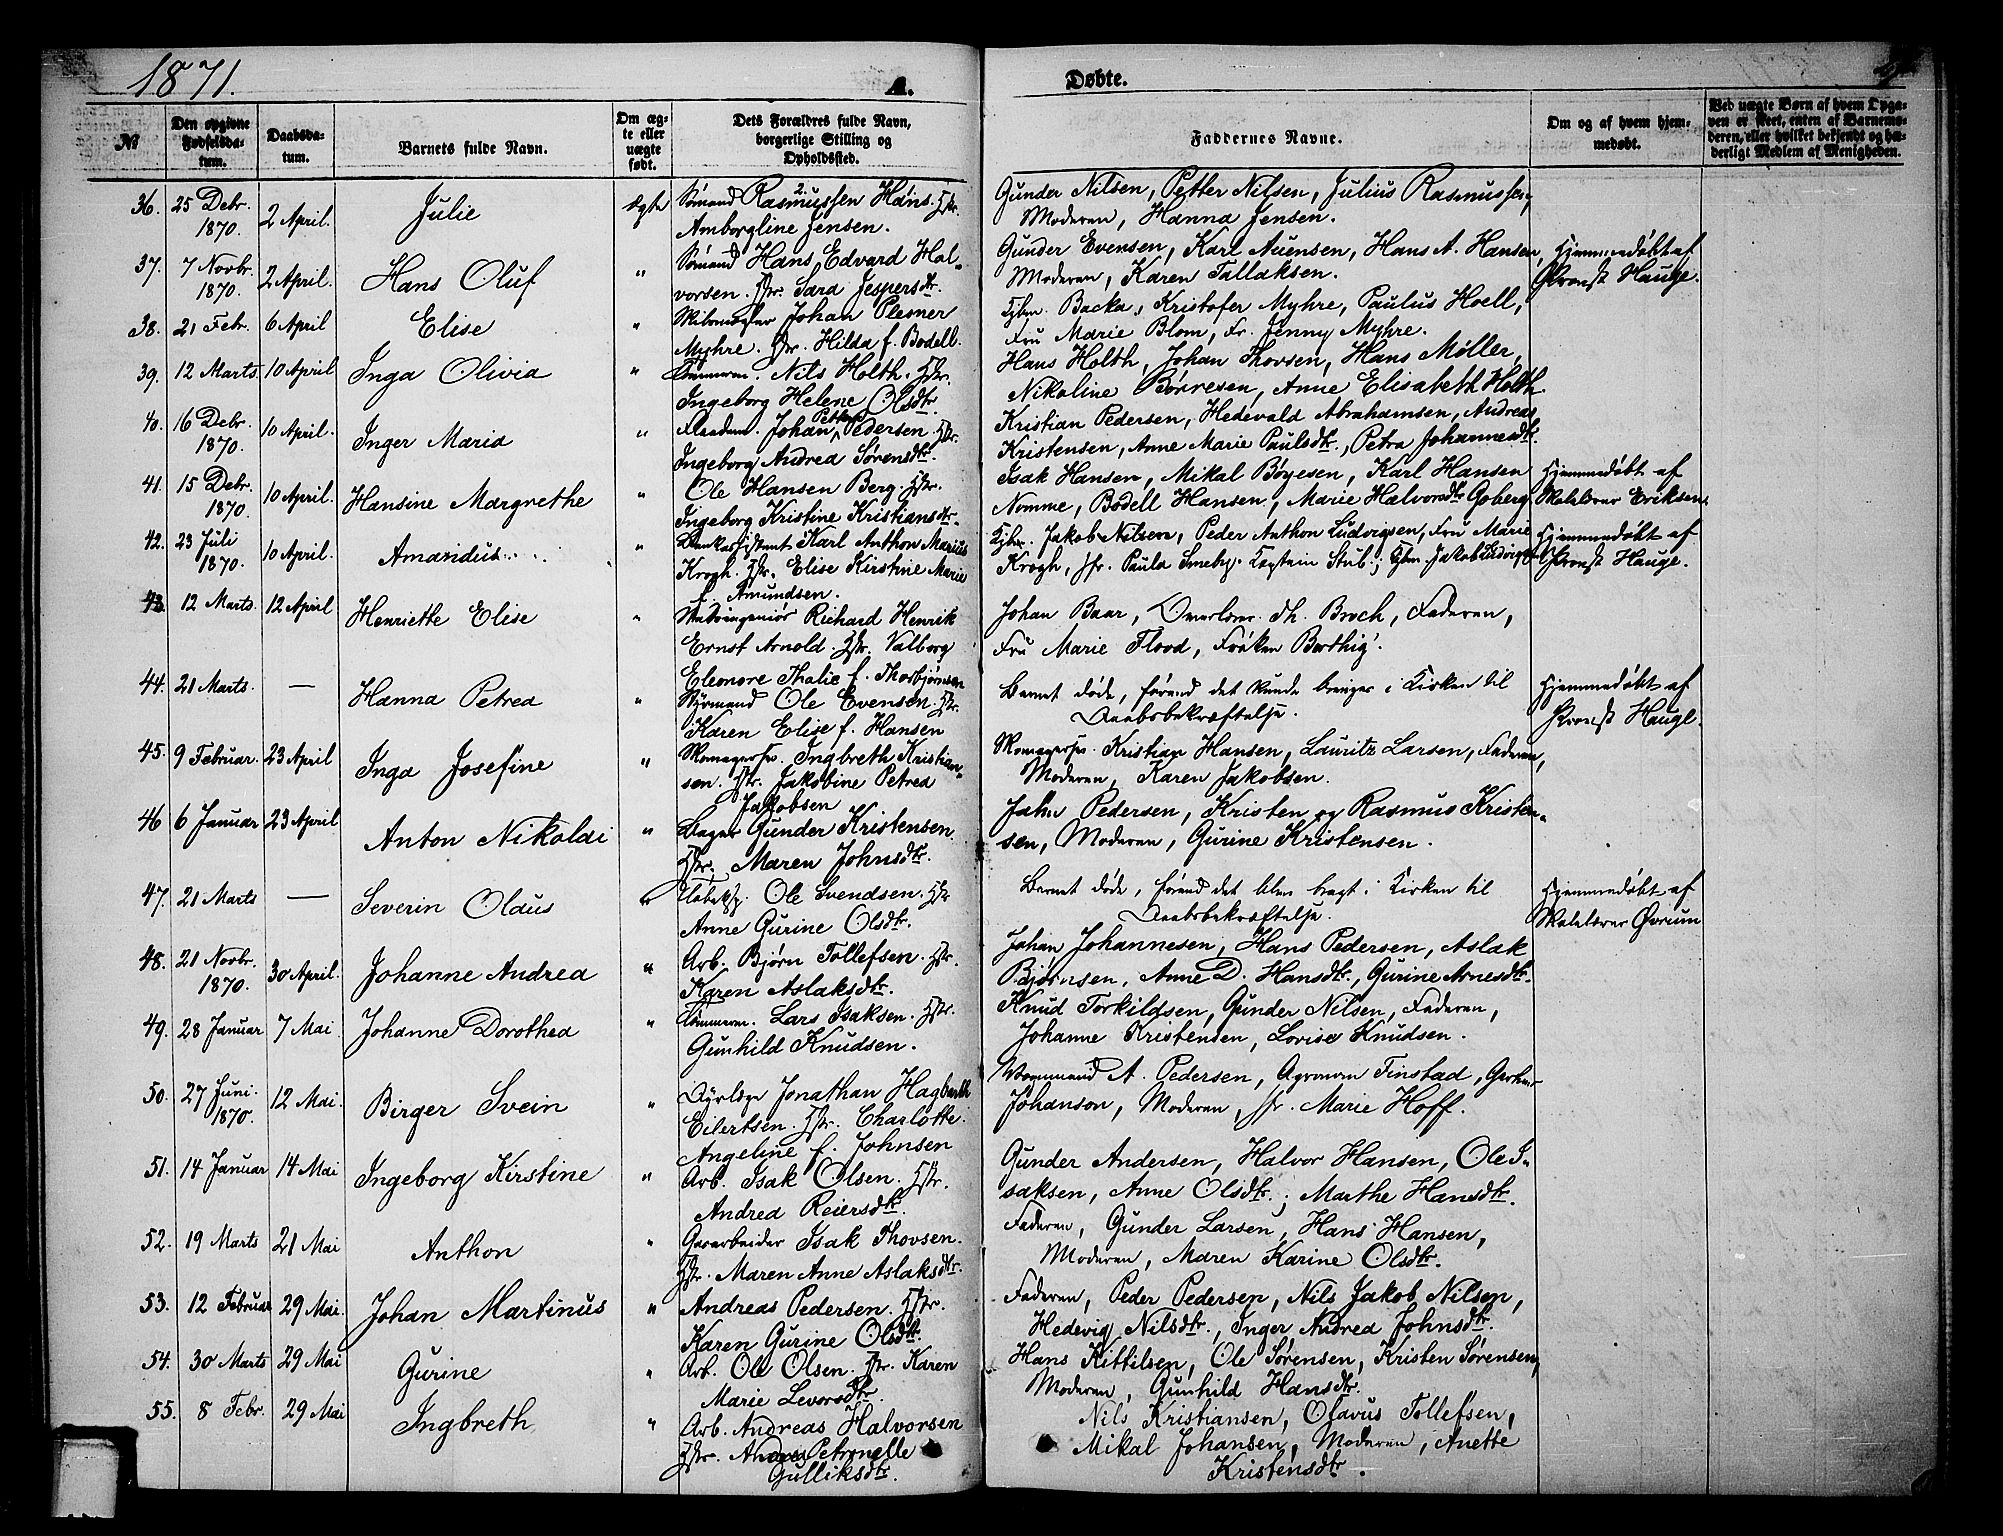 1871.
A.
Døbte.
№
Den opgivne Fødselsdatum.
Daabsdatum.
Barnets fulde Navn.
Om ægte eller uægte født.
Dets Forældres fulde Navn, borgerlige Stilling og Opholdssted.
Faddernes Navne.
Om og af hvem hjemmedøbt.
Ved uægte Børn af hvem Opgaven er skeet, enten af Barnemoderen, eller hvilket bekjendt og hæderligt Medlem af Menigheden.
36. 25 Debr. 1870. 2 April. Julie ægte Sømand Rasmussen Hans. Hstr.
Amborgline Jensen.
Gunder Nilsen, Petter Nilsen, Julius Rasmussen,
Moderen, Hanna Jensen.
37. 7 Novbr. 1870. 2 April. Hans Oluf " Sømand Hans Edvard Hal-
vorsen. Hstr. Sara Jespersdtr.
Gunder Evensen, Karl Auensen, Hans A. Hansen,
Moderen, Karen Tallaksen.
Hjemmedøbt af
Provst Hauge.
38. 21 Febr. 6 April Elise " Johan Plesner
Myhre. Hstr. Hilda f. Bodell.
Kjbm. Backa, Kristofer Myhre, Paulus Hoell,
Fru Marie Blom, Fr. Jenny Myhre.
39. 12 Marts. 10 April Inga Olivia " Tømmerm. Nils Holth. Hstr.
Ingeborg Helene Olsdtr.
Hans Holth, Johan Thovsen, Hans Møller,
Nikoline Børresen, Anne Elisabeth Holth.
40. 16 Debr. 1870. 10 April. Inger Maria " Johan Petter Pedersen Hstr.
Ingeborg Andrea Sørensdtr.
Kristian Pedersen, Hedevald Abrahamsen, Andreas
Kristensen, Anne Marie Paulsdtr., Petra Johannesdtr.
41. 15 Debr. 1870. 10 April. Hansine Margrethe " Ole Hansen Berg. Hstr.
Ingeborg Kristine Kristiansdtr.
Isak Hansen, Mikal Bøyesen, Karl Hansen
Nomme, Bodell Hansen, Marie Halvorsdtr. Goberg.
Hjemmedøbt af
Skolelærer Eriksen.
42. 23 Juli 1870. 10 April. Amandus " Bankassistent Karl Anthon Marius
Krogh. Hstr. Elise Kirstine Marie
f. Amundsen.
Kjbm. Jakob Nilsen, Peder Anthon Ludvigsen, Fru Marie
Krogh, Jfr. Paula Smeby. Captein Stub.; Kjbm. Jakob Ludvigsen
Hjemmedøbt af
Provst Hauge.
43. 12 Marts. 12 April Henriette Elise " Richard Henrik
Ernst Arnold. Hstr. Valborg
Eleonore Thalie f. Thorbjørnsen
Johan Baar, Overlærer Th. Broch, Faderen,
Fru Marie Flood, Frøken Barthig.
44. 21 Marts. — Hanna Petrea " Styrmand Ole Evensen. Hstr.
Karen Elise f. Hansen
Barnet døde, førend det kunde bringes i Kirken til
Daabsbekræftelse.
Hjemmedøbt af
Provst Hauge.
45. 9 Februar. 23 April Inga Josefine " Skomagersv. Ingbreth Kristian-
sen. Hstr. Jakobine Petrea
Jakobsen
Skomagersv. Kristian Hansen, Lauritz Larsen, Faderen,
Moderen, Karen Jakobsen.
46 6 Januar 23 April Anton Nikolai " Bager Gunder Kristensen
Hstr. Maren Johnsdtr.
Jahn Pedersen, Kristen og Rasmus Kristen-
sen, Moderen, Gurine Kristensen.
47. 21 Marts — Severin Olaus " Ole Svendsen. Hstr
Anne Gurine Olsdtr.
Barnet døde, førend det blev bragt i Kirken til
Daabsbekræftelse.
Hjemmedøbt af
Skolelærer Øvrum
48. 21 Novbr. 1870. 30 April. Johanne Andrea " Arb. Bjørn Tollefsen. Hstr.
Karen Aslaksdtr.
Johan Johannesen, Hans Pedersen, Aslak
Bjørnsen, Anne D. Hansdtr., Gurine Arnesdtr.
49. 28 Januar 7 Mai Johanne Dorothea " Tømmerm. Lars Isaksen. Hstr.
Gunhild Knudsen.
Knud Torkildsen, Gunder Nilsen, Faderen,
Johanne Kristensen, Lovise Knudsen.
50. 27 Juni. 1870. 12 Mai. Birger Svein " Dyrlæge Jonathan Hagbarth
Eilertsen. Hstr. Charlotte
Angeline f. Johnsen
A. Pedersen, Agronom Finstad,
Johanson, Moderen, Jfr. Marie Hoff.
51. 14 Januar 14 Mai Ingeborg Kirstine " Arb. Isak Olsen. Hstr.
Andrea Reiersdtr.
Gunder Andersen, Halvor Hansen, Ole I-
saksen, Anne Olsdtr.; Marthe Hansdtr.
52. 19 Marts 21 Mai Anthon " Gaarbeider Isak Thovsen.
Hstr. Maren Anne Aslaksdtr.
Faderen, Gunder Larsen, Hans Hansen,
Moderen, Maren Karine Olsdtr.
53. 12 Februar 29 Mai. Johan Martinus " Andreas Pedersen. Hstr.
Karen Gurine Olsdtr.
Faderen, Peder Pedersen, Nils Jakob Nilsen,
Hedevig Nilsdtr., Inger Andrea Johnsdtr.
54. 30 Marts 29 Mai Gurine " Arb. Ole Olsen. Hstr. Karen
Marie Levorsdtr.
Hans Kittilsen, Ole Sørensen, Kristen Sørensen,
Moderen, Gunhild Hansdtr.
55. 8 Febr. 29 Mai Ingbreth " Arb. Andreas Halvorsen
Hstr. Andrea Petronelle
Gulliksdtr.
Nils Kristiansen, Olavus Tollefsen,
Mikal Johansen, Moderen, Anette
Kristensdtr.